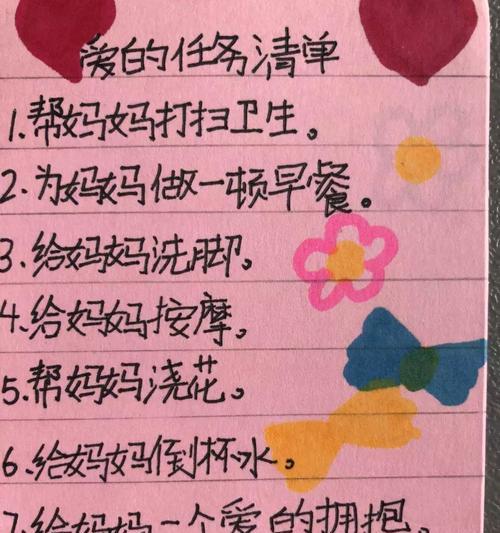 爱的任务清单
1.帮妈妈打扫卫生。
2.为妈妈做一顿早餐。
3.给妈妈洗脚。
4.给妈妈按摩。
5.帮妈妈浇花。
6.给妈妈倒杯水。
7.给妈妈一个爱的拥抱。